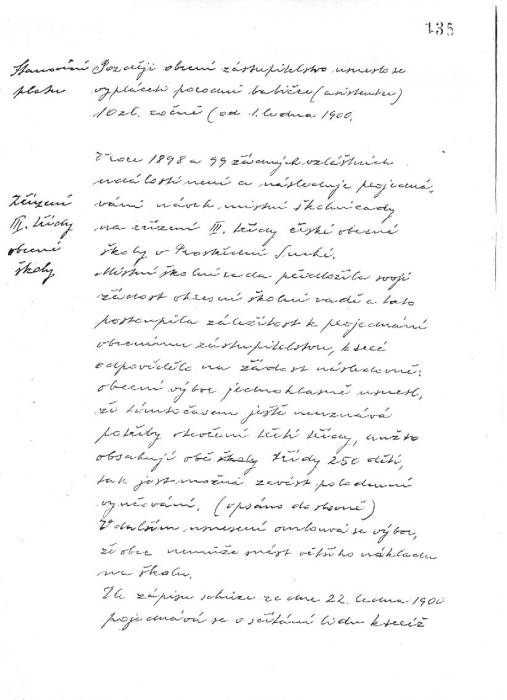 135
Stanovení
platu
Později obecní zastupitelstvo usneslo se
vypláceti porodní babičce (asistentce)
10 zl. ročně (od 1. ledna 1900.
V roce 1898 a 99 žádných zvláštních
událostí není a následuje projedná-
vání návrh. místní škol. rady
na zřízení III. třídy české obecné
školy v Prostřední Suché.
Zřízení
III. třídy
obecné
školy
Místní škol. rada předložila svoji
žádost okresní školní radě a tato
postoupila záležitost k projednání
obecnímu zastupitelstvu, které
odpovědělo na žádost následovně:
obecní výbor jednohlasně usnesl,
že tímto časem ještě neuznává
potřeby otevření třetí třídy, an
obsahují obě školy třídy 250 dětí,
tak jest možná zavést polodenní
vyučování. (opsáno doslovně)
V dalším usnesení omlouvá se výbor,
že obec nemůže snést většího nákladu
na školu.
Ze zápisu schůze ze dne 22. ledna 1900
pojednává se o sčítání lidu k